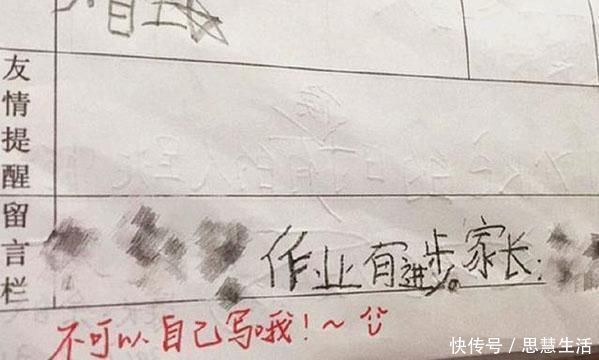 友情提醒留言栏
作业有进步。家长:
不可以自己写哦!~
快传号/思慧生活